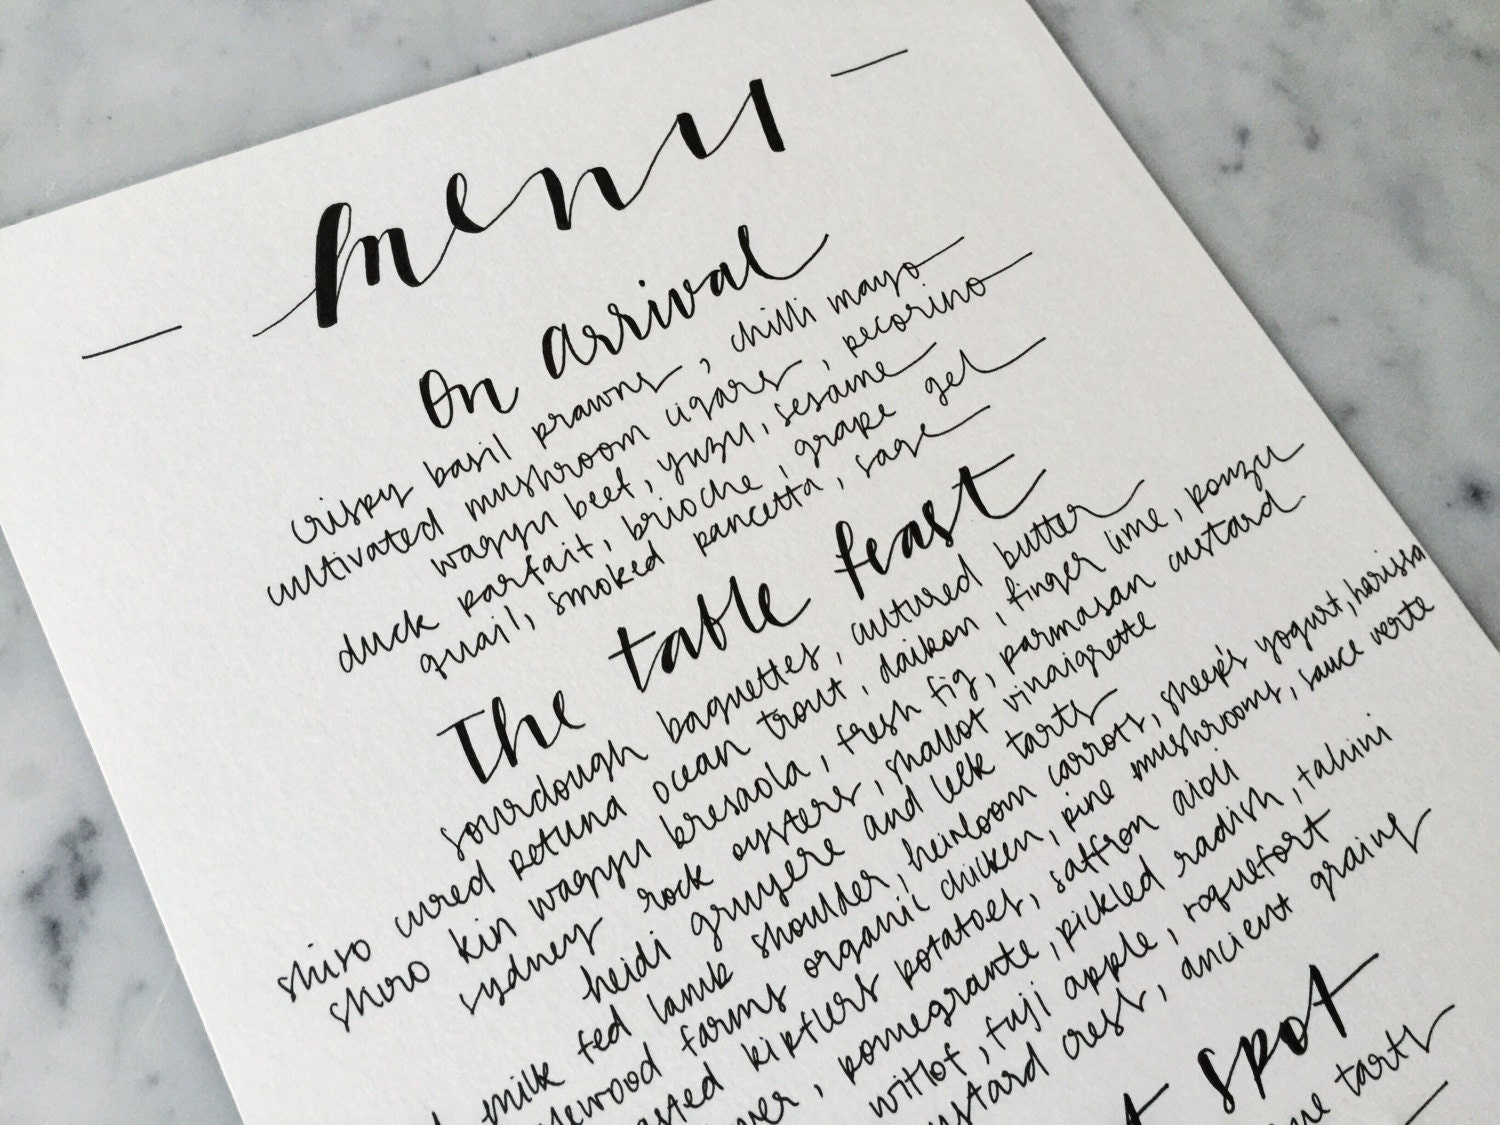 menu
On arrival
crispy basil prawns, chilli mayo
cultivated mushroom cigars, pecorino
wagyu beef, yuzu, sesame
duck parfait, brioche, grape gel
quail, smoked pancetta, sage
The table feast
sourdough baguettes, cultured butter
shiro cured petuna ocean trout, daikon, finger lime, ponzu
shiro kin wagyu bresaola, fresh fig, parmasan custard
sydney rock oysters, shallot vinaigrette
heidi gruyere and leek tarts
milk fed lamb shoulder, heirloom carrots, sheep's yogurt, harissa
farms organic chicken, pine mushrooms, sauce verte
kipflers potatoes, saffron aioli
pomegrante, pickled radish, tahini
witlof, fuji apple, roquefort
crest, ancient grains
spot
tarts